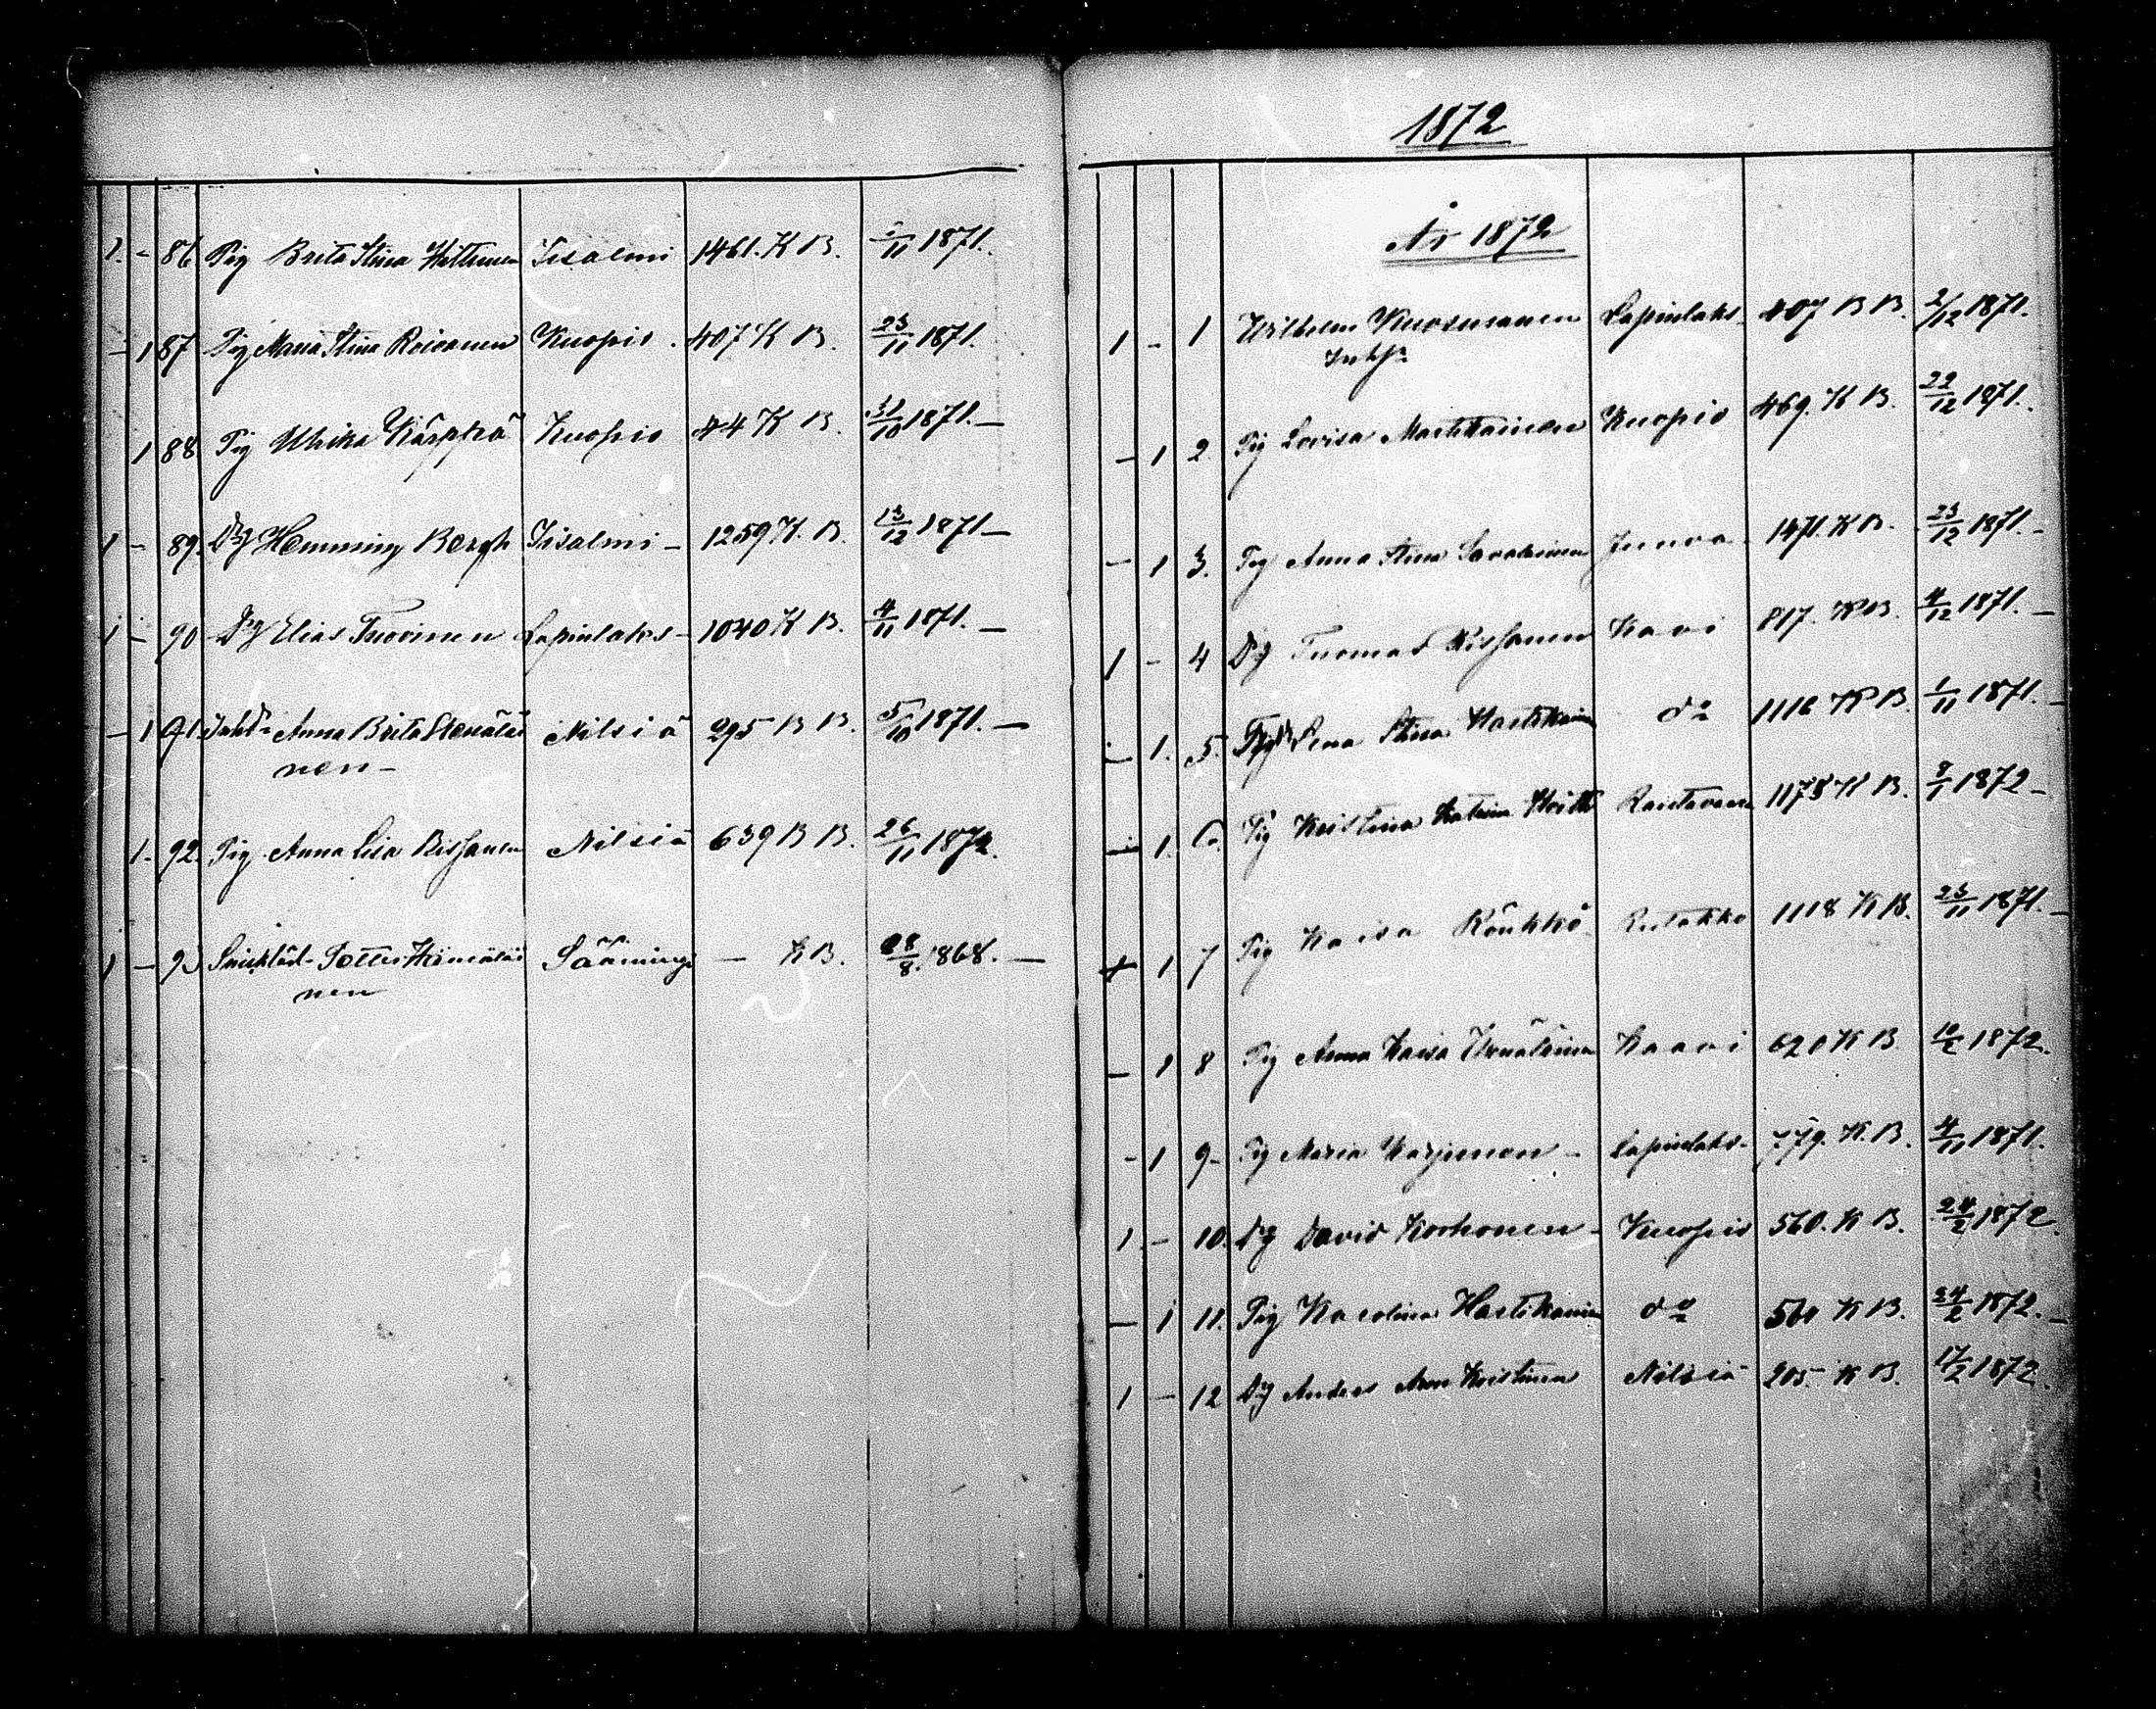 1. - 86 Pig Brita Stina Wittunen Iisalmi 1461. K B. 2/11 1871.
- 1 87 Pig Maria Stina Roivanen Kuopio. 407 K B. 23/11 1871.
1 88. Pig Ulrika Kärppä Kuopio 44 K B. 31/10 1871. -
1 - 89. Dg Hemming Bergh Iisalmi - 1259 K. B. 13/12 1871 -
1 - 90 Dg Elias Tuovinen Lapinlaks - 1040 K B. 4/11 1871. -
- 1 91. Anna Brita Venäläi Nilsiä 295 B B. 5/10 1871. -
nen -
1. 92. Pig Anna Lisa Rissanen Nilsiä 639 B B. 26/11 1872.
1 - 93 Petter Hämäläi Sääminge - K B. 28/8. 1868. -
nen
1872
År 1872
1 - 1 Wilhelm Kuosmanen Lapinlaks. 407 B B. 2/12 1871.
Inhs
- 1 2 Pig Lovisa Martikainen Kuopio 469. K B. 22/12 1871.
- 1 3. Pig Anna Stina Savolainen Juuva 1471. K B. 23/12 1871. -
1 - 4 Dg Tuomas Rissanen Kavi 817. K B. 4/12 1871. -
- 1. 5. Lena Stina Hartikain do 1116 K B. 1/11 1871. -
- 1. 6. Pig Kristina Katrina Rautavaara 1178 K B. 8/1 1872 -
+ 1 7 Pig Kaisa Rönkkö Rutakko 1118 K B. 23/11 1871. -
- 1 8 Pig Anna Kaisa Venäläinen Kaavi 620 K B. 10/2 1872.
- 1 9 - Pig Maria Karjunen - Lapinlaks - 779. K. B. 4/11 1871.
1 - 10. Dg David Korhonen - Kuopio 560. K B. 24/2 1872.
- 1 11. Pig Karolina Hartikainen do 560 K B. 24/2 1872. -
1 - 12 Dg Anders Kristian Nilsiä 205 - K B. 17/2 1872.